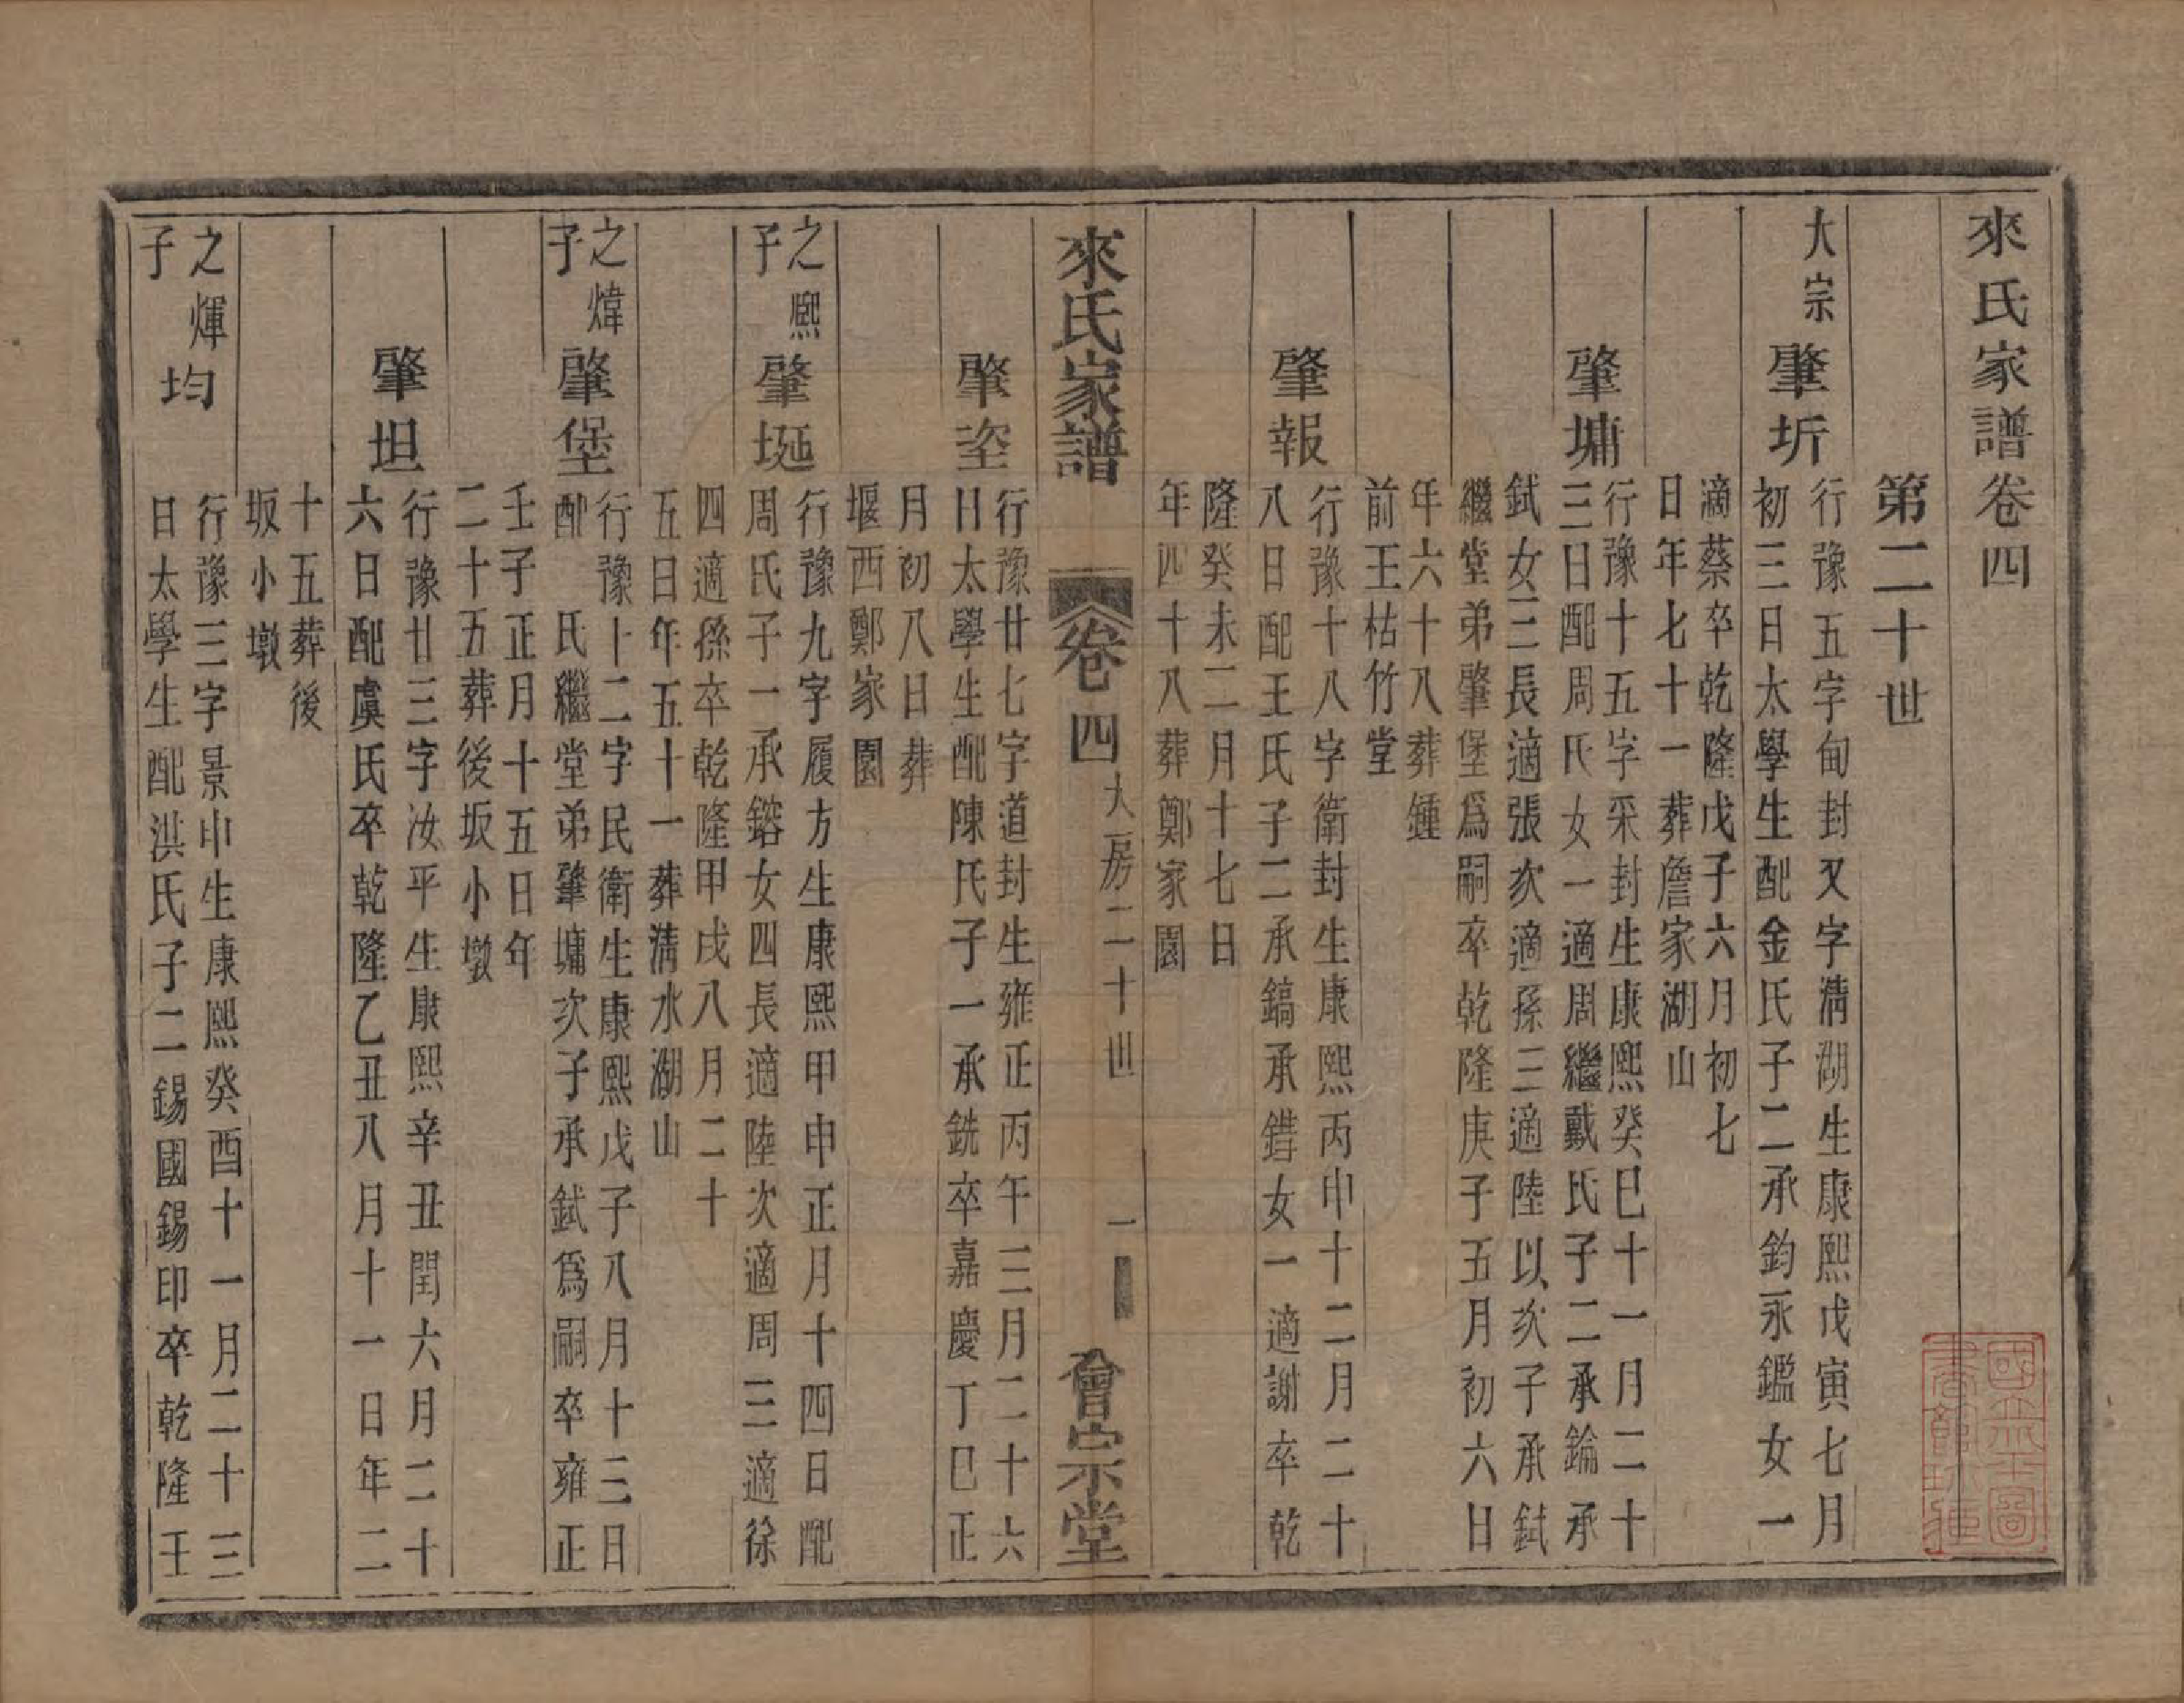 來氏家譜卷四
第二十世
大宗
肇圻
行豫五字甸封又字淸湖生康熙戊寅七月
初三日太學生配金氏子二承鈞永鑑女一
適蔡卒乾隆戊子六月初七
日年七十一葬詹家湖山
肇墉
行豫十五字采封生康熙癸巳十一月二十
三日配周氏女一適周繼戴氏子二承錀承
鉽女三長適張次適孫三適陸以次子承鉽
繼堂弟肇堡爲嗣卒乾隆庚子五月初六日
年六十八葬鍾
前王枯竹堂
肇報
行豫十八字衛封生康熙丙申十二月二十
八日配王氏子二承鎬承錯女一適謝卒乾
隆癸未二月十七日
年四十八葬鄭家園
來氏家譜
卷四
大房二十世
一
會宗堂
肇垐
行豫廿七字道封生雍正丙午三月二十六
日太學生配陳氏子一承銑卒嘉慶丁巳正
月初八日葬
堰西鄭家園
之熙
子
肇埏
行豫九字履方生康熙甲申正月十四日配
周氏子一承鎔女四長適陸次適周三適徐
四適孫卒乾隆甲戌八月二十
五日年五十一葬淸水湖山
之煒
子
肇堡
行豫十二字民衛生康熙戊子八月十三日
配 氏繼堂弟肇墉次子承鉽爲嗣卒雍正
壬子正月十五日年
二十五葬後坂小墩
肇坦
行豫廿三字汝平生康熙辛丑閏六月二十
六日配虞氏卒乾隆乙丑八月十一日年二
十五葬後
坂小墩
之煇
子
均
行豫三字景申生康熙癸酉十一月二十三
日太學生配洪氏子二錫國錫印卒乾隆壬